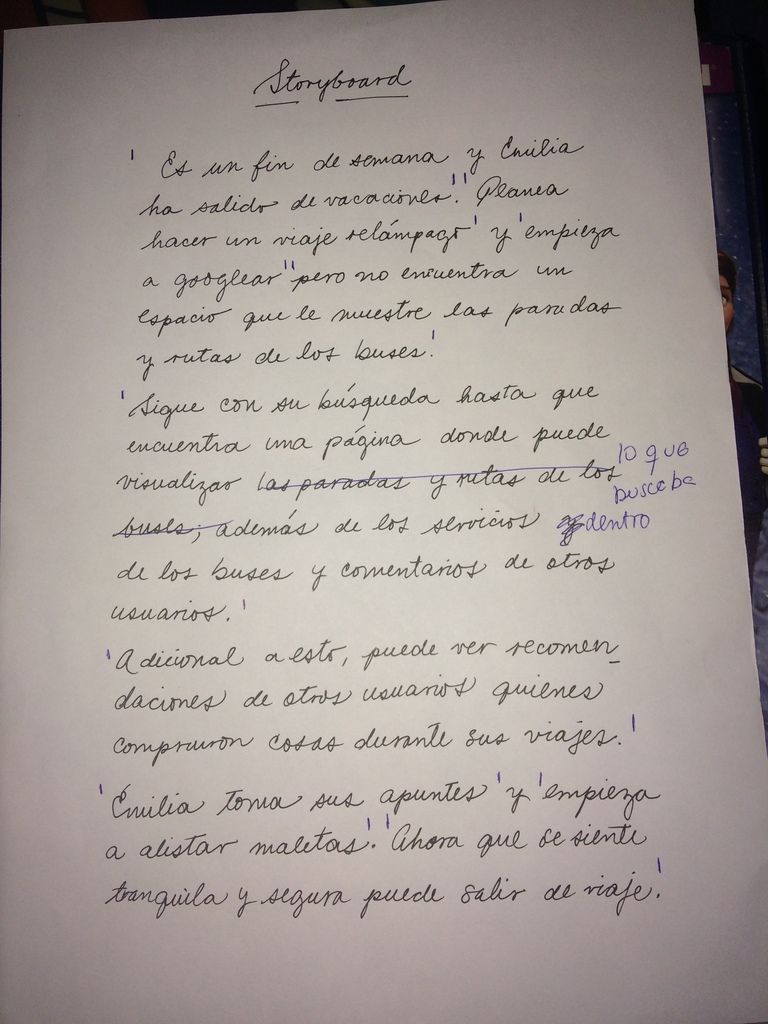 Storyboard
' Es un fin de semana y Emilia
ha salido de vacaciones'.' Planea
hacer un viaje relámpago' y 'empieza
a googlear' 'pero no encuentra un
espacio que le muestre las paradas
y rutas de los buses.'
'Sigue con su búsqueda hasta que
encuentra una página donde puede
visualizar las paradas y rutas de los lo que
buscaba
buses, además de los servicios dentro
de los buses y comentarios de otros
usuarios.'
'Adicional a esto, puede ver recomen_
daciones de otros usuarios quienes
compraron cosas durante sus viajes.'
'Emilia toma sus apuntes' y 'empieza
a alistar maletas'.' Ahora que se siente
tranquila y segura puede salir de viaje.'